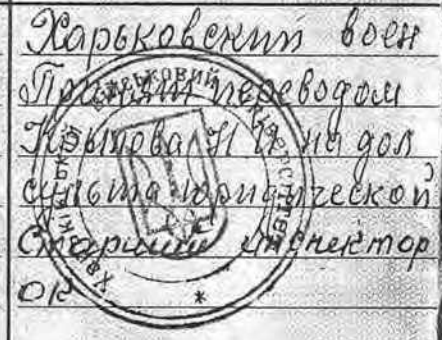 Харьковский воен
Принят переводом
Крылова Н И на дол
сульта юридической
Старший инспектор
ОК